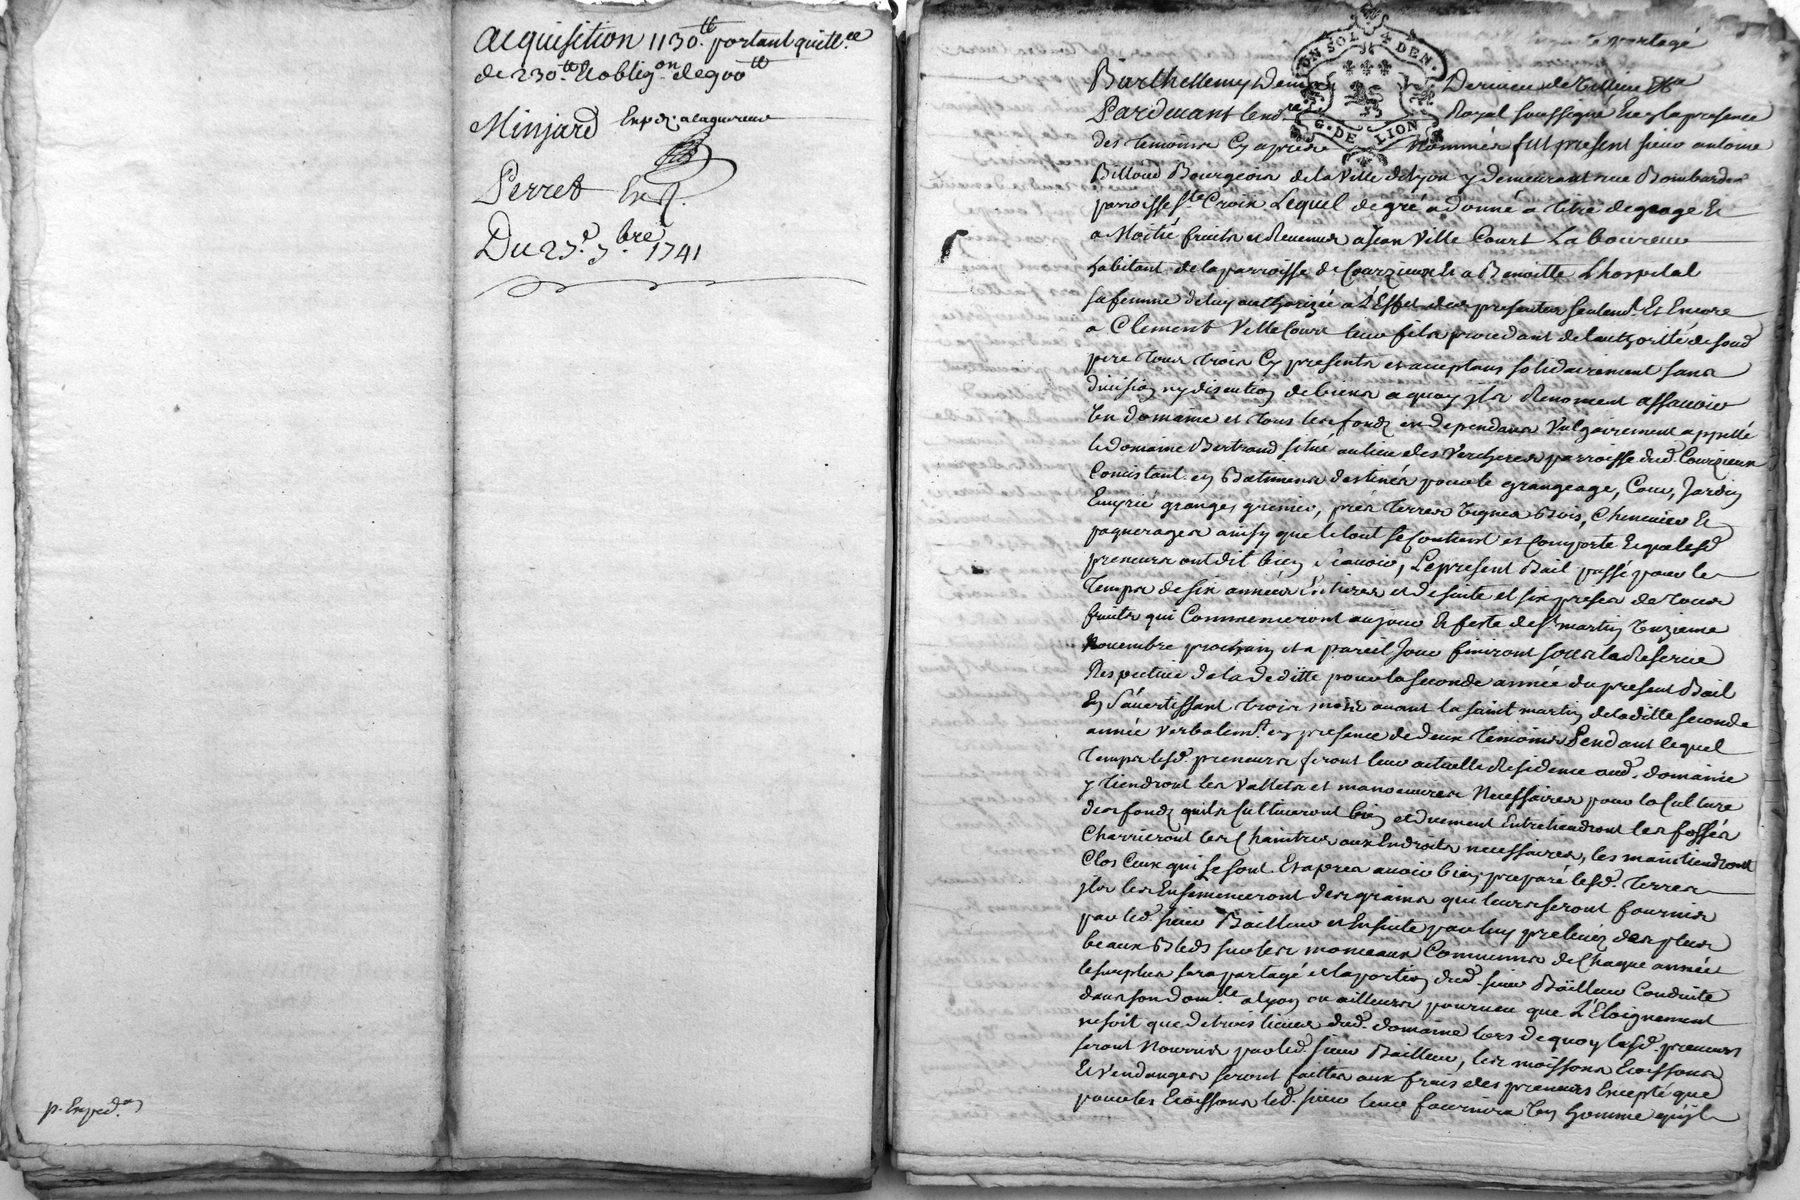 acquisition 1130.tt portant quitt.ce
de 230.tt & oblig.on de 900 tt
Minjard Exp.
Perret
Du 23.e 7.bre 1741
p. Exped.on
partagé
UN. SOL. 4 DEN.
G. DE LION
Barthellemy
Pardevant le no.re Royal soussigné & en la presence
des temoins cy apres nommés fut present sieur antoine
Billoud Bourgeois de la Ville de Lyon y demeurant rue Bombarde
parroisse ste Croix Lequel de gré a donné a titre de grage &
a Moitié fruits et Revenus a Jean Ville Court Laboureur
habitant de la parroisse de Courzieux & a Benoitte L'hospital
sa femme de luy authorizée a L'Effet des presentes seulem.t Et Encore
a Clement Ville Court leur fils procedant de l'authorité de sond.
pere tous trois Cy presents et acceptans solidairement sans
division ny discution de biens a quoy ils Renoncent assavoir
Un domaine et tous les fondz en dependans Vulgairement appellé
le domaine Bertrand situé au lieu des Vercheres parroisse dud. Courzieux
Consistant en Batiments destinés pour le grangeage, Cour, Jardin
granges grenier, prés terres Vignes Bois, Cheneviere &
paquerages ainsy que le tout se Contient et Comporte & que lesd.
preneurs ont dit bien sçavoir, Le present Bail passé pour le
Temps de six années Entieres et de suitte et six prises de tous
fruits qui Commenceront au jour & feste de st martin Unzieme
Novembre prochain et a pareil Jour finiront sous la Reserve
Respective de la deditte pour la seconde année du present Bail
En s'avertissant trois mois avant la saint martin de laditte seconde
année Verbalem.t en presence de deux temoins Pendant lequel
Temps lesd. preneurs feront leur actuelle Residence aud. domaine
y tiendront les Vallets et manoeuvres Necessaires pour la Culture
des fondz quils Cultiveront bien et duement Entretiendront les fossés
Charrieront les Chaintres aux Endroits necessaires, les maintiendront
Clos Ceux qui se sont Et apres avoir bien preparé lesd. Terres
ils les Ensemenceront des grains qui leurs seront fournis
par led. sieur Bailleur et Ensuite par luy prelevéz des plus
beaux Bleds sur les monceaux Communs de Chaque année
le surplus sera partagé et la portion dud. sieur Bailleur Conduite
dans son dom.lle a Lyon ou ailleurs pourveu que L'Eloignement
ne soit que de trois lieues dud. domaine lors de quoy lesd. preneurs
seront Nourris par led. sieur Bailleur, les moissons Eoissons
& Vendanges seront faittes aux frais des preneurs Excepté que
pour les Eoissons led. sieur leur fournira Un homme qu'il